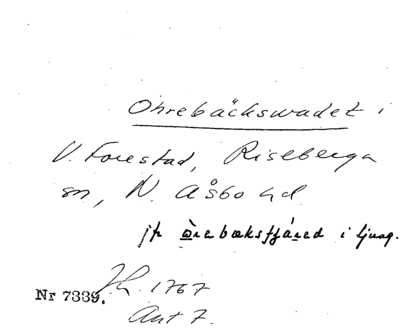 Ohrebäckswadet i
V. Forestad, Riseberga
sn, N. Åsbo hd
jfr òrebæksfjáred i ljung.
Nr 7339. Jh. 1767
Akt 7.